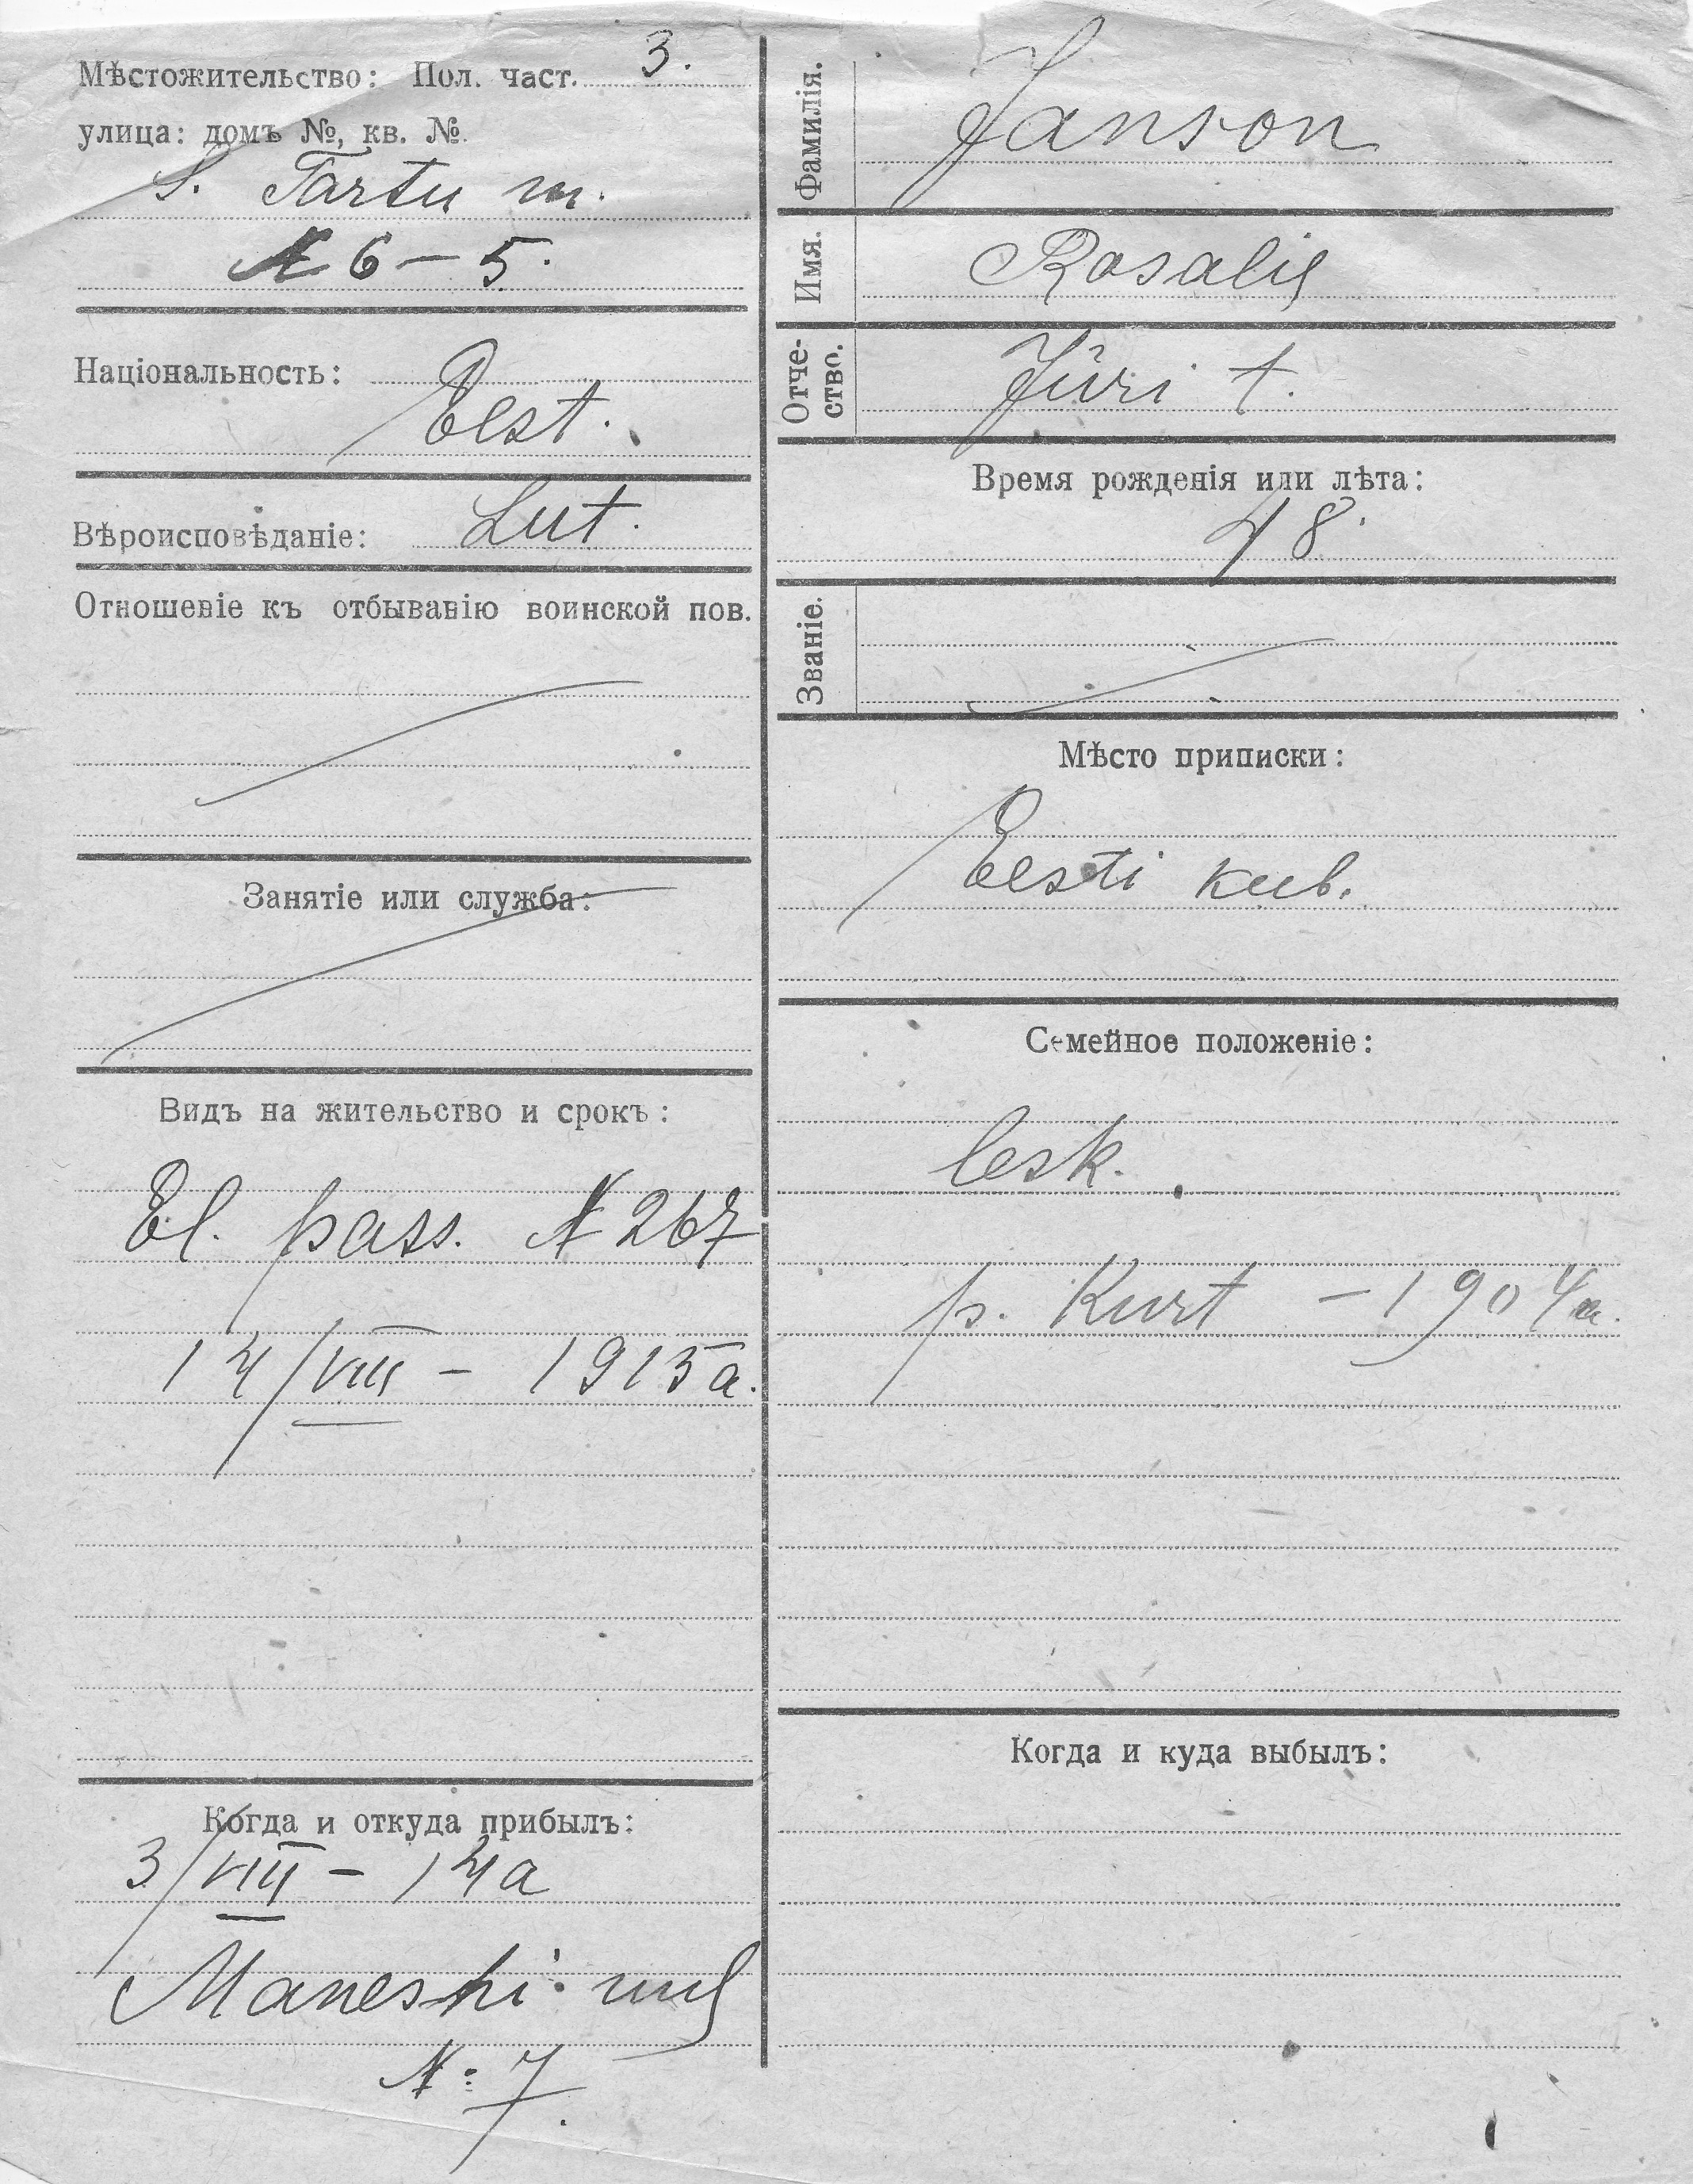 Мѣстожительство: Пол. част. 3.
улица: домъ №, кв. №.
S. Tartu m.
№ 6 – 5.
Національность:
Eest.
Вѣроисповѣданіе: Lut.
Отношеніе къ отбыванію воинской пов.
Занятіе или служба:
Видъ на жительство и срокъ:
El. pass. № 267
14/VIII – 1915 a.
Когда и откуда прибылъ:
3/VIII – 14 a
№ 7.
Фамилія. Janson
Имя. Rosalie
Отче-
ство. Jüri t.
Время рожденія или лѣта:
48.
Званіе.
Мѣсто приписки:
Eesti kub.
Семейное положеніе:
lesk.
p. Kurt – 1904 a.
Когда и куда выбылъ: